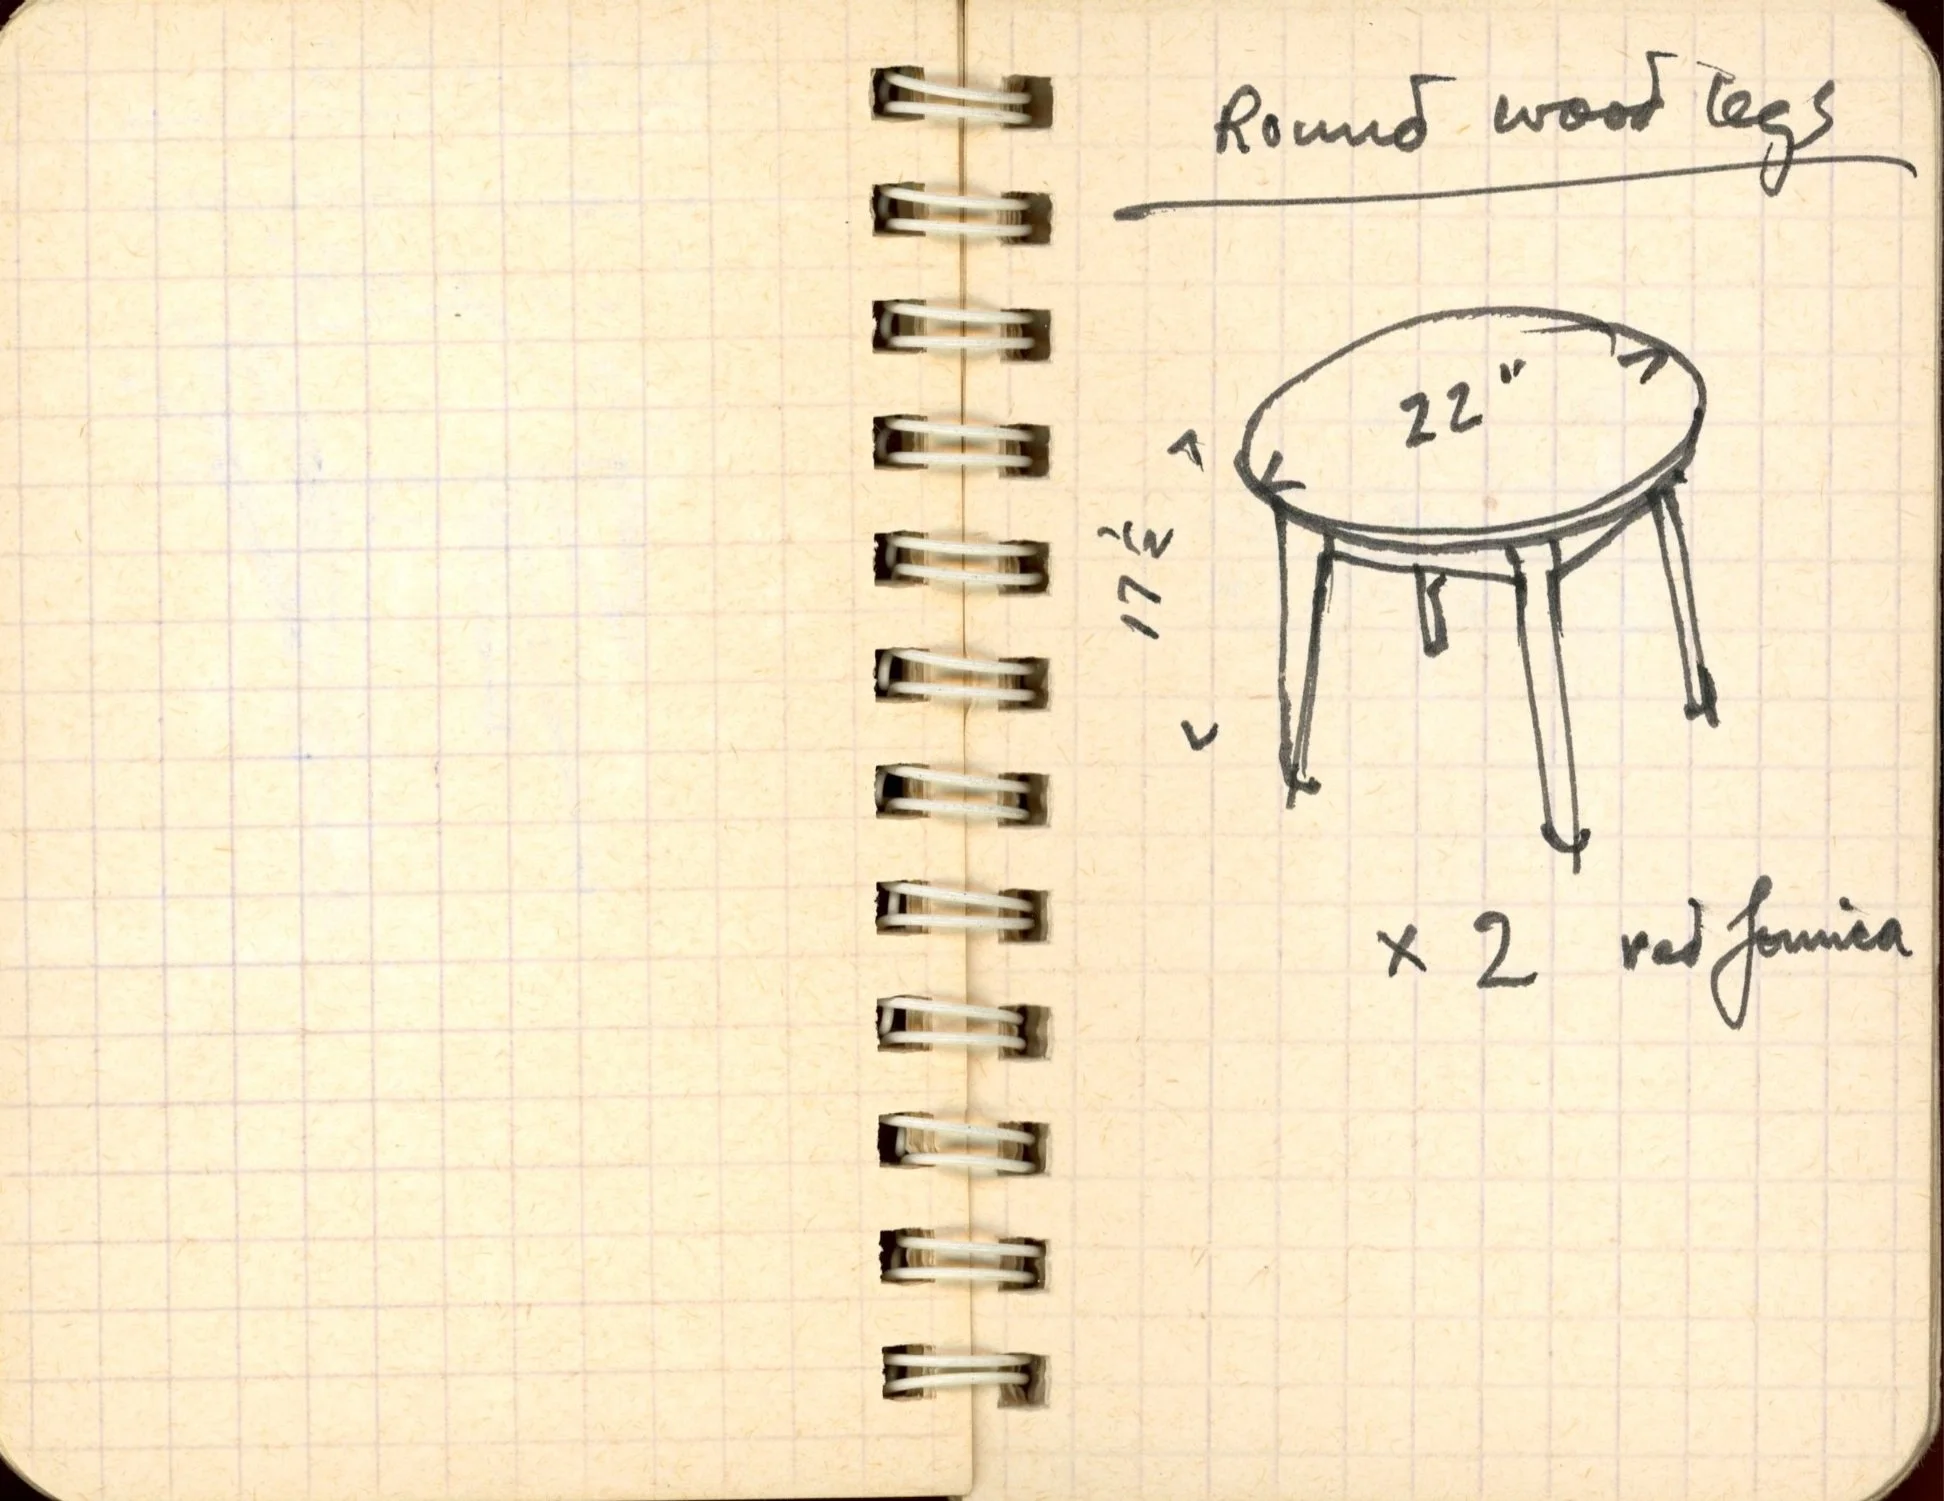 Round wood legs
22"
17 1/2
x 2 red formica